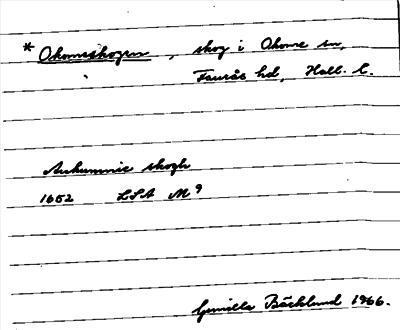 * Okomeskogen, skog i Okome sn,
Faurås hd, Hall. l.
skogh
1652 LSA M 9
Gunilla Bäcklund 1966.